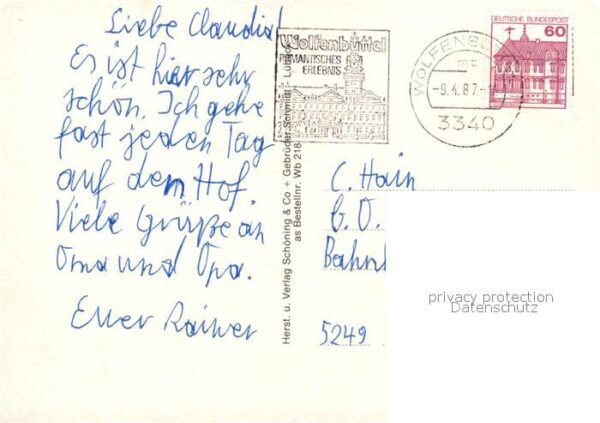 Liebe Claudia!
Es ist hier sehr
schön. Ich gehe
fast jeden Tag
auf dem Hof.
Viele Grüße an
Oma und Opa.
Euer Rainer
Wolfenbüttel
ROMANTISCHES
ERLEBNIS
WOLFENBÜ
mc
-9.4.87-
3340
DEUTSCHE BUNDESPOST
60
Herst. u. Verlag Schöning & Co + Gebrüder Schmidt · Lübeck
as Bestellnr. Wb 218
C. Hain
b. O.
Bahnh
5249
privacy protection
Datenschutz